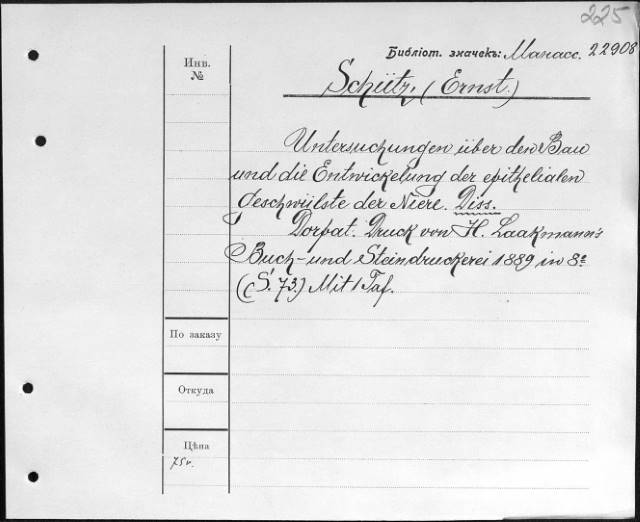 225
Библіот. значекъ: Манасс. 22908
Инв.
№
Schütz, (Ernst.)
Untersuchungen über den Bau
und die Entwickelung der epithelialen
Geschwülste der Niere. Diss.
Dorpat. Druck von H. Laakmann's
Buch- und Steindruckerei 1889 in 8º
(S. 73.) Mit 1 Taf.
По заказу
Откуда
Цѣна
75к.